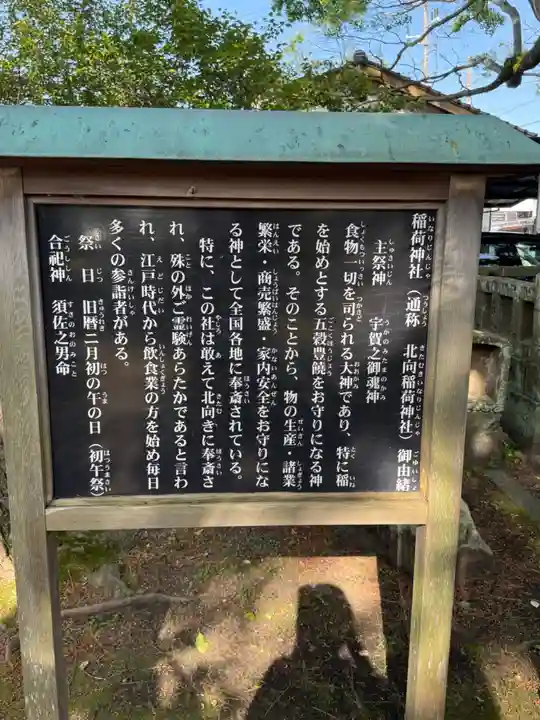 稲荷神社（通称　北向稲荷神社）御由緒
主祭神　宇賀之御魂神
食物一切を司られる大神であり、特に稲
を始めとする五穀豊饒をお守りになる神
である。そのことから、物の生産・諸業
繁栄・商売繁盛・家内安全をお守りにな
る神として全国各地に奉斎されている。
特に、この社は敢えて北向きに奉斎さ
れ、殊の外ご霊験あらたかであると言わ
れ、江戸時代から飲食業の方を始め毎日
多くの参詣者がある。
祭　日　旧暦二月初の午の日（初午祭）
合祀神　須佐之男命